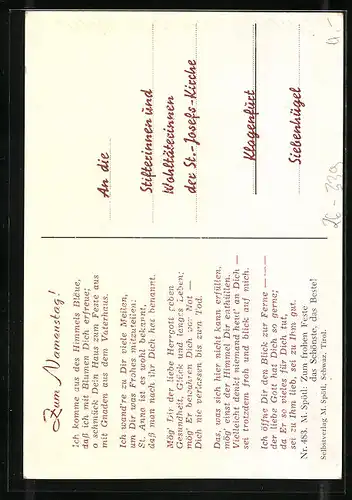 Zum Namenstag!
Ich komme aus des Himmels Bläue,
daß ich mit Blumen Dich erfreue;
o schmück' Dein Haus zum Feste aus
mit Gnaden aus dem Vaterhaus.
Ich wand're zu Dir viele Meilen,
um Dir was Frohes mitzuteilen:
St. Anna ist es wohl bekannt,
daß man nach ihr Dich hat benannt.
Mög' Dir der liebe Herrgott geben
Gesundheit, Glück und langes Leben;
mög' Er bewahren Dich vor Not —
Dich nie verlassen bis zum Tod.
Das, was sich hier nicht kann erfüllen,
mög' einst der Himmel Dir enthüllen.
Vielleicht denkt niemand heut' an Dich —
sei trotzdem froh und blick auf mich.
Ich öffne Dir den Blick zur Ferne —
der liebe Gott hat Dich so gerne;
da Er so vieles für Dich tut,
sei zu Ihm lieb, sei zu Ihm gut.
Nr. 483 M. Spötl: Zum frohen Feste
das Schönste, das Beste!
Selbstverlag M. Spötl, Schwaz, Tirol.
An die
Stifterinnen und
Wohltäterinnen
der St.-Josefs-Kirche
Klagenfurt
Siebenhügel